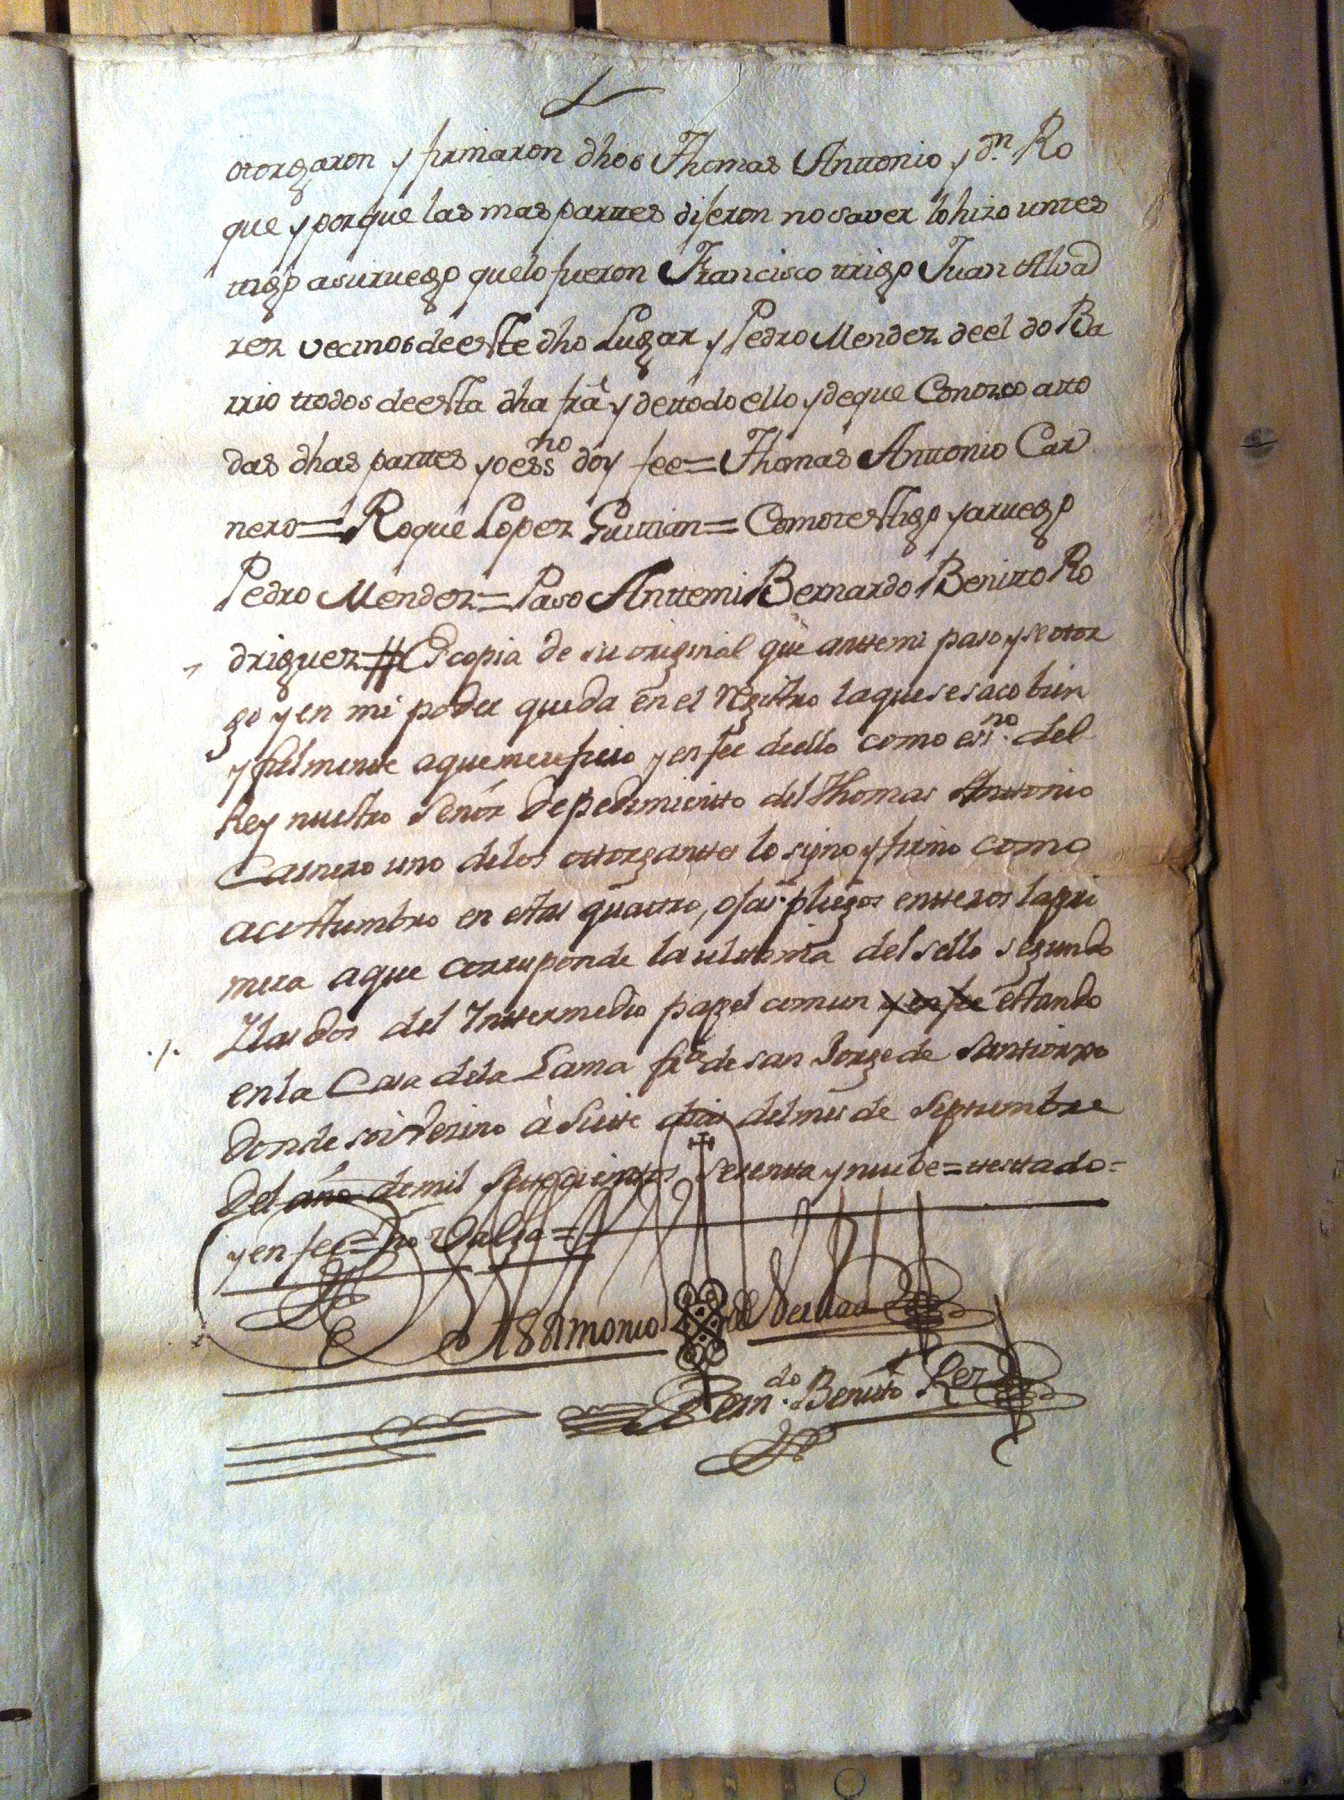 otorgaron y firmaron dhos Thomas Anttonio, y dn. Ro
que y porque las mas parttes dijeron no saver lo hizo un tes
ttigo a su ruego que lo fueron Francisco ttrigo Juan Alva
rez vecinos de este dho Lugar y Pedro Mendez de el do Ba
rrio ttodos de esta dha fra. y de ttodo ello y de que Conozco a tto
das dhas parttes yo essno doy fee = Thomas Anttonio Car
nero = Roque Lopez Guittian = Como testigo y a ruego
Pedro Mendez = Paso Anttemi Bernardo Benitto Ro
driguez # Es copia de su original que anttemi paso y se otor
go y en mi poder queda en el registro la que se saco bien
y fielmente a que me refiero y en fee de ello como essno. del
Rey nuestro señor de pedimiento del Thomas Anttonio
Carnero uno de los ottorganttes lo signo y firmo como
acosttumbro en estas quattro, ojas pliegos entteros la pri
mera a que corresponde la ulttima del sello segundo
Y las dos del Inttermedio papel comun y en fee estando
en la Casa de la Lama fra. de san Jorge de Santiorxo
donde soi Vecino à Siete dias del mes de Septiembre
del año de mil Settecientos setenta y nuebe = testtado =
y en fee = no Valga =
Testtimonio de Verdad
Bern.do Benitto Rez